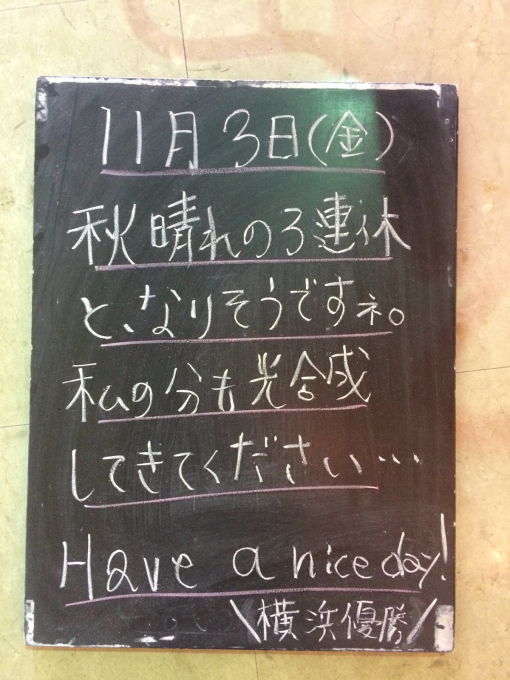 11月3日(金)
秋晴れの3連休
と、なりそうですネ。
私の分も光合成
してきてください…
Have a nice day!
\横浜優勝/